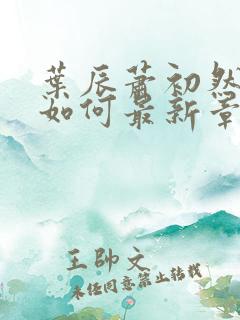 葉辰蕭初然
如何最新章
王帥文
未任同意禁止转载